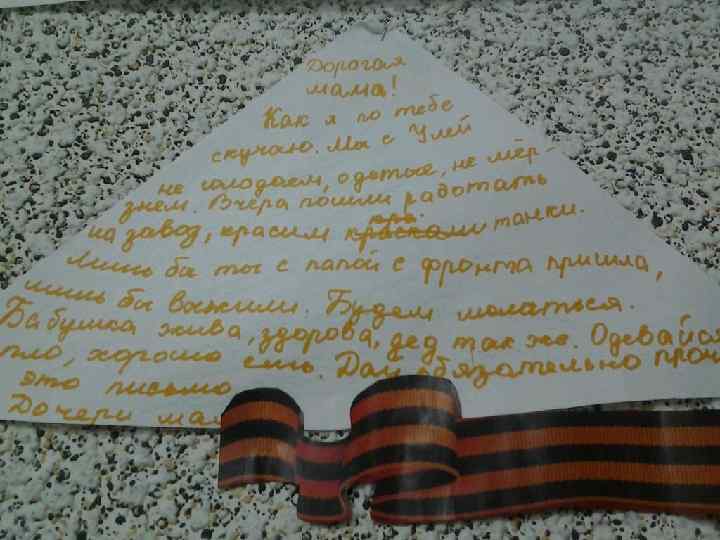 Дорогая
мама!
Как я по тебе
скучаю. Мы с Улей
не голодаем, одетые, не мёр-
знем. Вчера пошли работать
на завод, красим красками танки.
Лишь бы ты с папой с фронта пришла,
лишь бы выжили. Будем молаться.
Бабушка жива, здорова, дед так же. Одевайся
пло, хорошо ешь. Дай обязательно проч
это письмо
Дочери ма